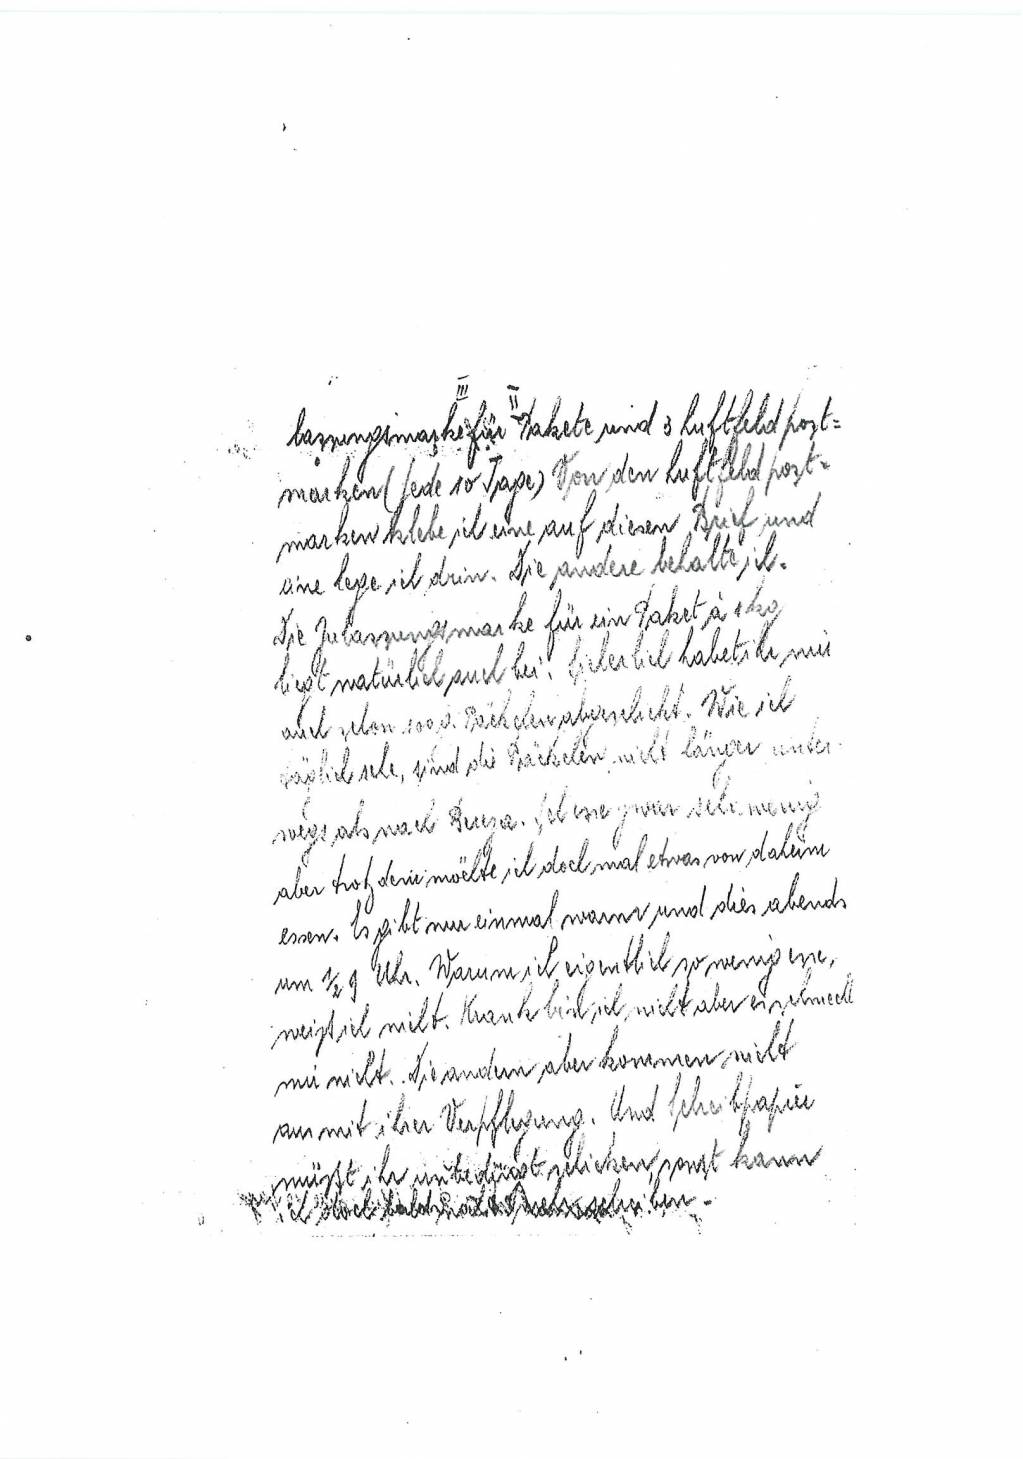 III II
lassungsmarke für Pakete und 3 Luftfeldpost=
marken (jede 10 Tage) Von den Luftfeldpost=
marken klebe ich eine auf diesen Brief und
eine lege ich drin. Die andere behalte ich.
Die Zulassungsmarke für ein Paket à 1 kg
liegt natürlich auch bei. Sicherlich habet ihr mir
auch schon 100 g. Päckchen abgeschickt. Wie ich
täglich sehe, sind die Päckchen nicht länger unter-
wegs als nach. Ich esse zwar sehr wenig
aber trotzdem möchte ich doch mal etwas von daheim
essen. Es gibt nur einmal warm und dies abends
um 1/2 9 Uhr. Warum ich eigentlich so wenig esse,
weiß ich nicht. Krank bin ich nicht aber es schmeckt
mir nicht. Die andern aber kommen nicht
aus mit ihrer Verpflegung. Und Schreibpapier
müßt ihr unbedingt schicken, sonst kann
ich doch bald schreiben.